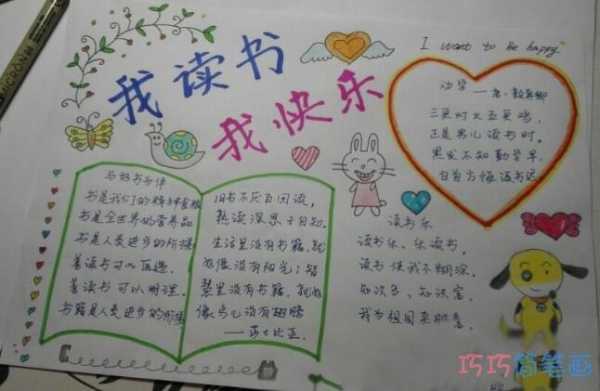 我读书
我快乐
I want to be happy
劝学
——唐·颜真卿
三更灯火五更鸡,
正是男儿读书时。
黑发不知勤学早,
白首方悔读书迟
与好书为伴
书是我们的精神食粮
书是全世界的营养品
书是人类进步的阶梯
善读书可以医愚。
善读书可以明理。
书籍是人类进步的阶梯
旧书不厌百回读,
熟读深思子自知。
生活里没有书籍,就
好像没有阳光;智
慧里没有书籍,就好
像鸟儿没有翅膀
——莎士比亚。
读书乐
读书乐、乐读书,
读书使我不糊涂。
知识多、知识富,
我为祖国来
巧巧简笔画